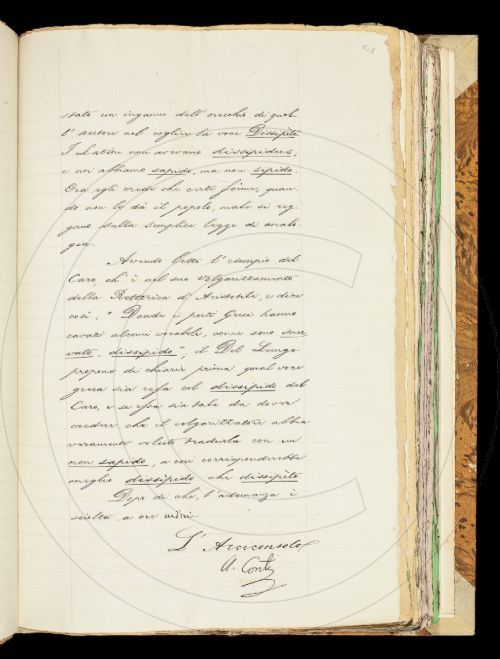 stato un inganno dell' orecchio di quel-
l' autore nel coglier la voce Dissipito
I Latini non avevano dissipidus,
e noi abbiamo sapido, ma non sipido.
Ora egli crede che certe forme, quan-
do non le dà il popolo, male si reg-
gano sulla semplice legge di analo-
gia.
Avendo letto l' esempio del
Caro, ch' è nel suo volgarizzamento
della Rettorica d' Aristotile, e dice
così: " Donde i poeti Greci hanno
cavati alcuni vocaboli, come sono
dissipido", il Del Lungo
propone di chiarir prima qual voce
greca sia resa col dissipido del
Caro, e se essa sia tale da dover
credere che il volgarizzatore abbia
veramente voluto tradurla con un
non sapido, a cui corrisponderebbe
meglio dissipido che dissipito
Dopo di che, l' adunanza è
sciolta a ore
L' Arciconsolo
A. Conti